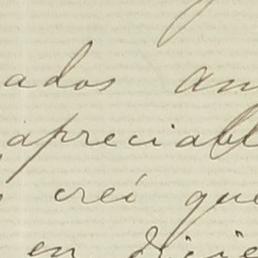 ados am
apreciabl
creí que
en dicie